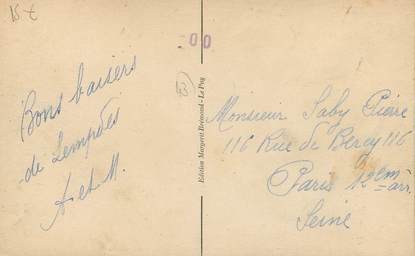 15 €
00
Bons baisers
de Lempdes
A et M.
Edition Margerit-Brémond - Le Puy
Monsieur Saby Pierre
116 Rue de Bercy 116
Paris 12em arr.
Seine